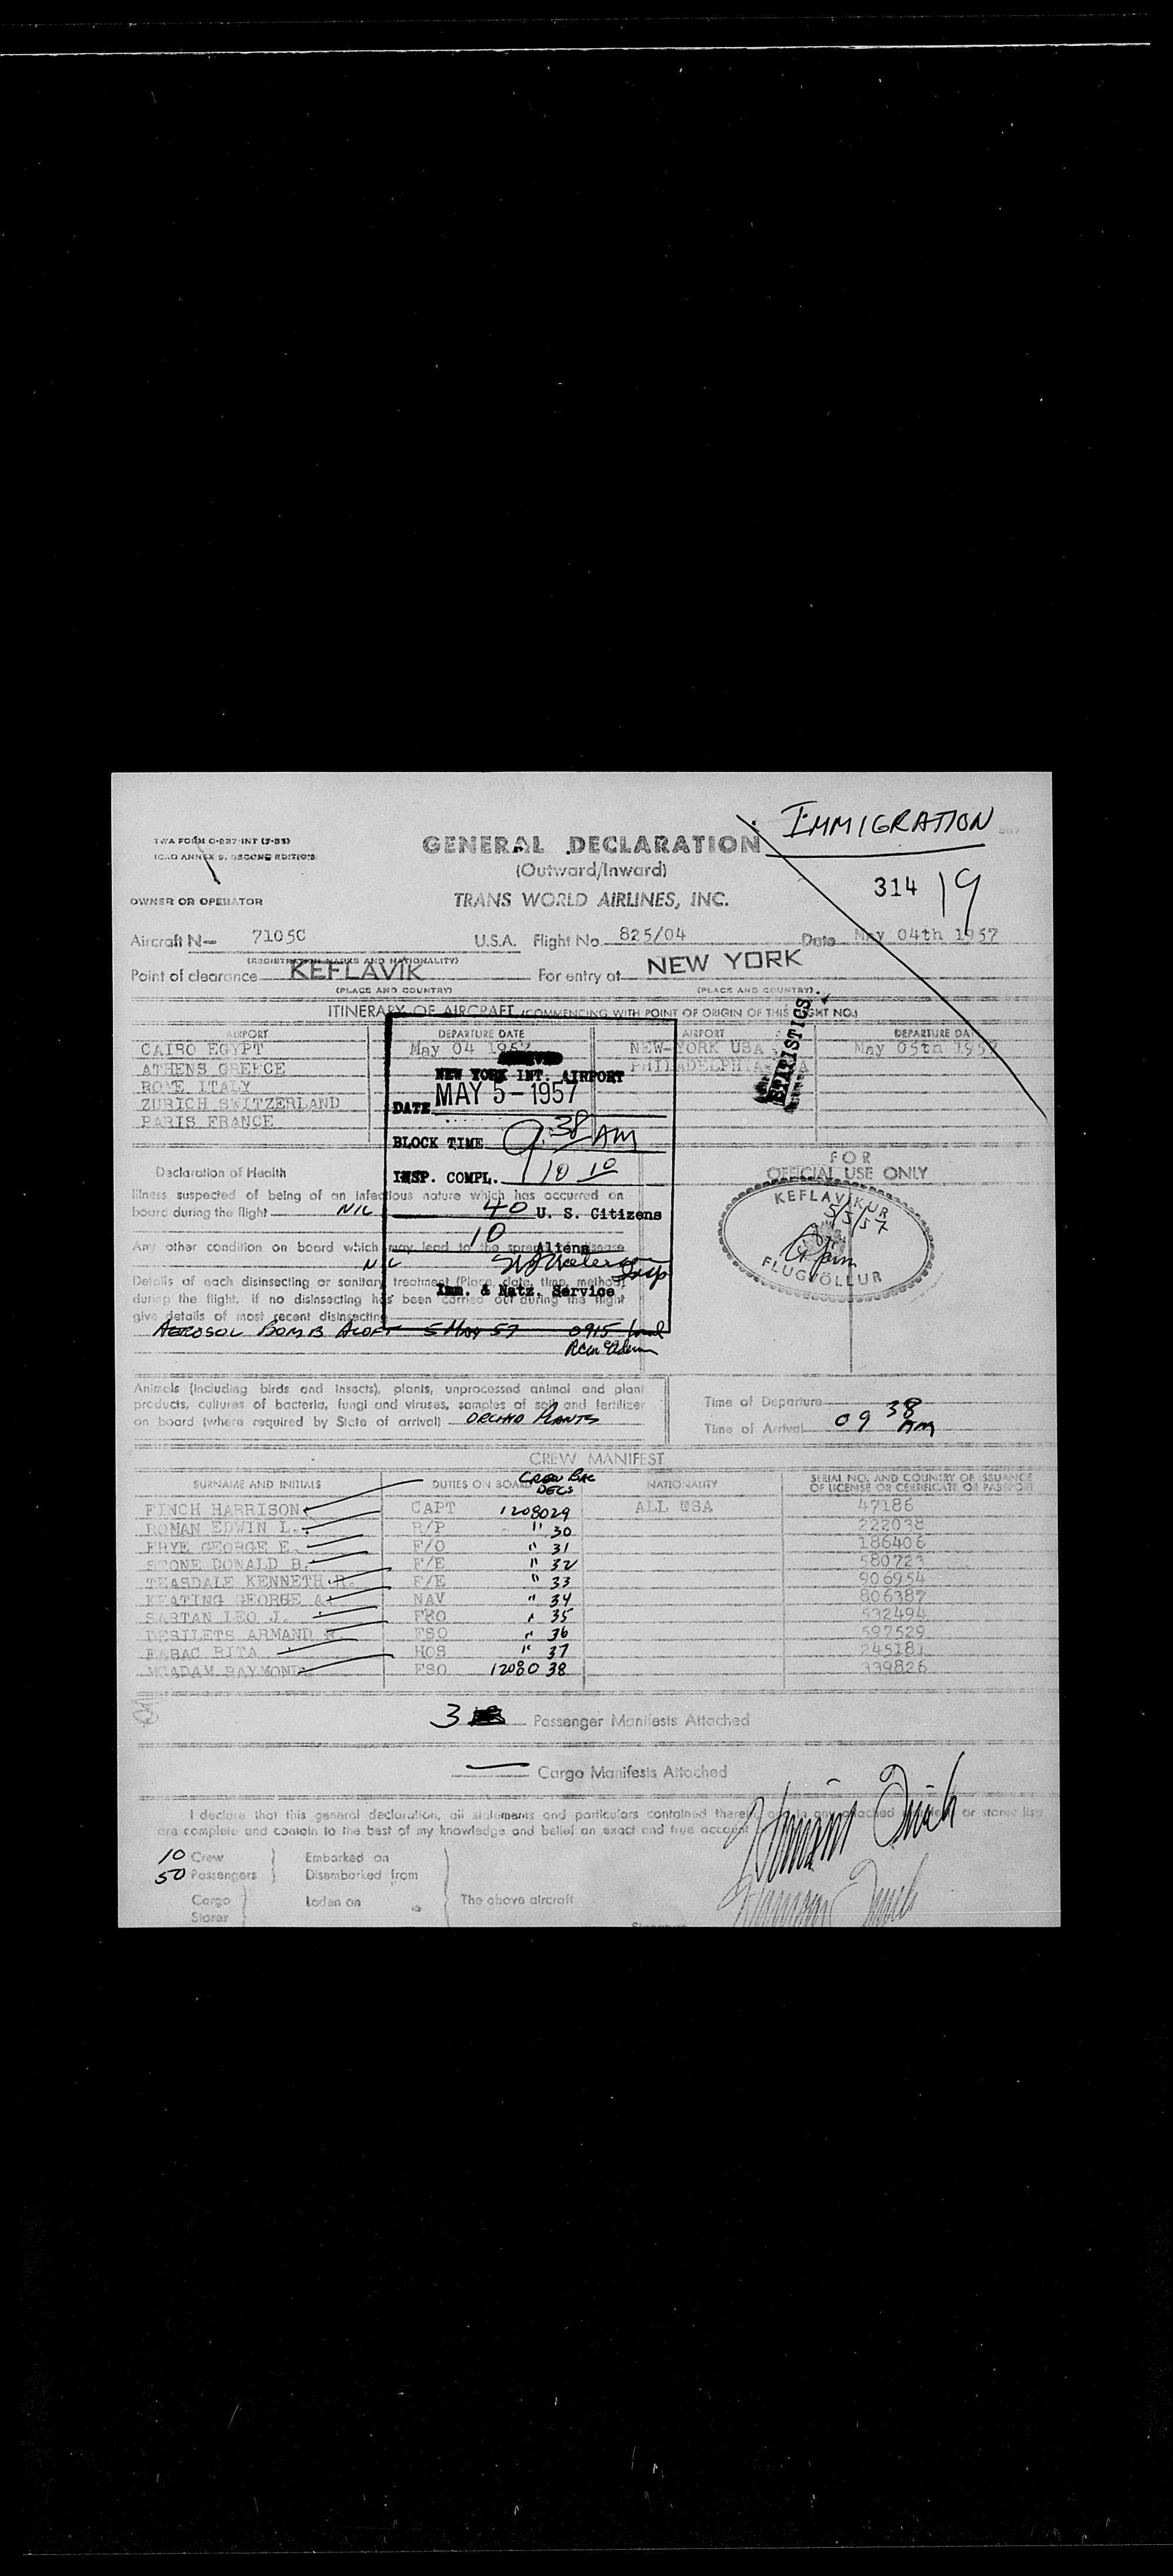 IMMIGRATION
TWA FORM O-827-INT (3-53)
ICAO ANNEX 9, SECOND EDITION
GENERAL DECLARATION
(Outward/Inward)
314 19
OWNER OR OPERATOR
TRANS WORLD AIRLINES, INC.
Aircraft N— 7105C U.S.A. Flight No. 825/04 Date May 04th 1957
(REGISTRATION MARKS AND NATIONALITY)
Point of clearance KEFLAVIK For entry at NEW YORK
(PLACE AND COUNTRY) (PLACE AND COUNTRY)
ITINERARY OF AIRCRAFT (COMMENCING WITH POINT OF ORIGIN OF THIS FLIGHT NO.)
AIRPORT DEPARTURE DATE AIRPORT DEPARTURE DATE
CAIRO EGYPT May 04 1957 NEW-YORK USA May 05th 1957
ATHENS GREECE PHILADELPHIA
ROME ITALY
ZURICH SWITZERLAND
PARIS FRANCE
STATISTICS
NEW YORK INT. AIRPORT
DATE MAY 5 - 1957
BLOCK TIME 9:38 AM
INSP. COMPL. 10 10
40 U. S. Citizens
10 Aliens
Insp
Imm. & Natz. Service
Declaration of Health
Illness suspected of being of an infectious nature which has occurred on
board during the flight NIL
Any other condition on board which may lead to the spread of disease
NIL
Details of each disinsecting or sanitary treatment (Place, date, time, method)
during the flight. If no disinsecting has been carried out during the flight
give details of most recent disinsecting
AEROSOL BOMB ALOFT 5 MAY 57 0915
FOR
OFFICIAL USE ONLY
KEFLAVIKUR
5/5/57
FLUGVÖLLUR
Animals (including birds and insects), plants, unprocessed animal and plant
products, cultures of bacteria, fungi and viruses, samples of soil and fertilizer
on board (where required by State of arrival) ORCHID PLANTS
Time of Departure
Time of Arrival 09 38 AM
CREW MANIFEST
CREW BAG
DECS
SURNAME AND INITIALS DUTIES ON BOARD NATIONALITY SERIAL NO. AND COUNTRY OF ISSUANCE
OF LICENSE OR CERTIFICATE OR PASSPORT
FINCH HARRISON CAPT 1208029 ALL USA 47186
ROMAN EDWIN L. R/P " 30 222038
FRYE GEORGE E. F/O " 31 186406
STONE DONALD B. F/E " 32 580723
TEASDALE KENNETH R. F/E " 33 906954
KEATING GEORGE A. NAV " 34 806387
SARTAN LEO J. FRO " 35 532494
DESILETS ARMAND R. FSO " 36 597529
RABAC RITA HOS " 37 245181
MCADAM RAYMOND FSO 12080 38 339826
3 Passenger Manifests Attached
Cargo Manifests Attached
I declare that this general declaration, all statements and particulars contained therein, and in any attached or stores lists
are complete and contain to the best of my knowledge and belief an exact and true account
10 Crew Embarked on
50 Passengers Disembarked from
Cargo Laden on The above aircraft
Stores
Signature